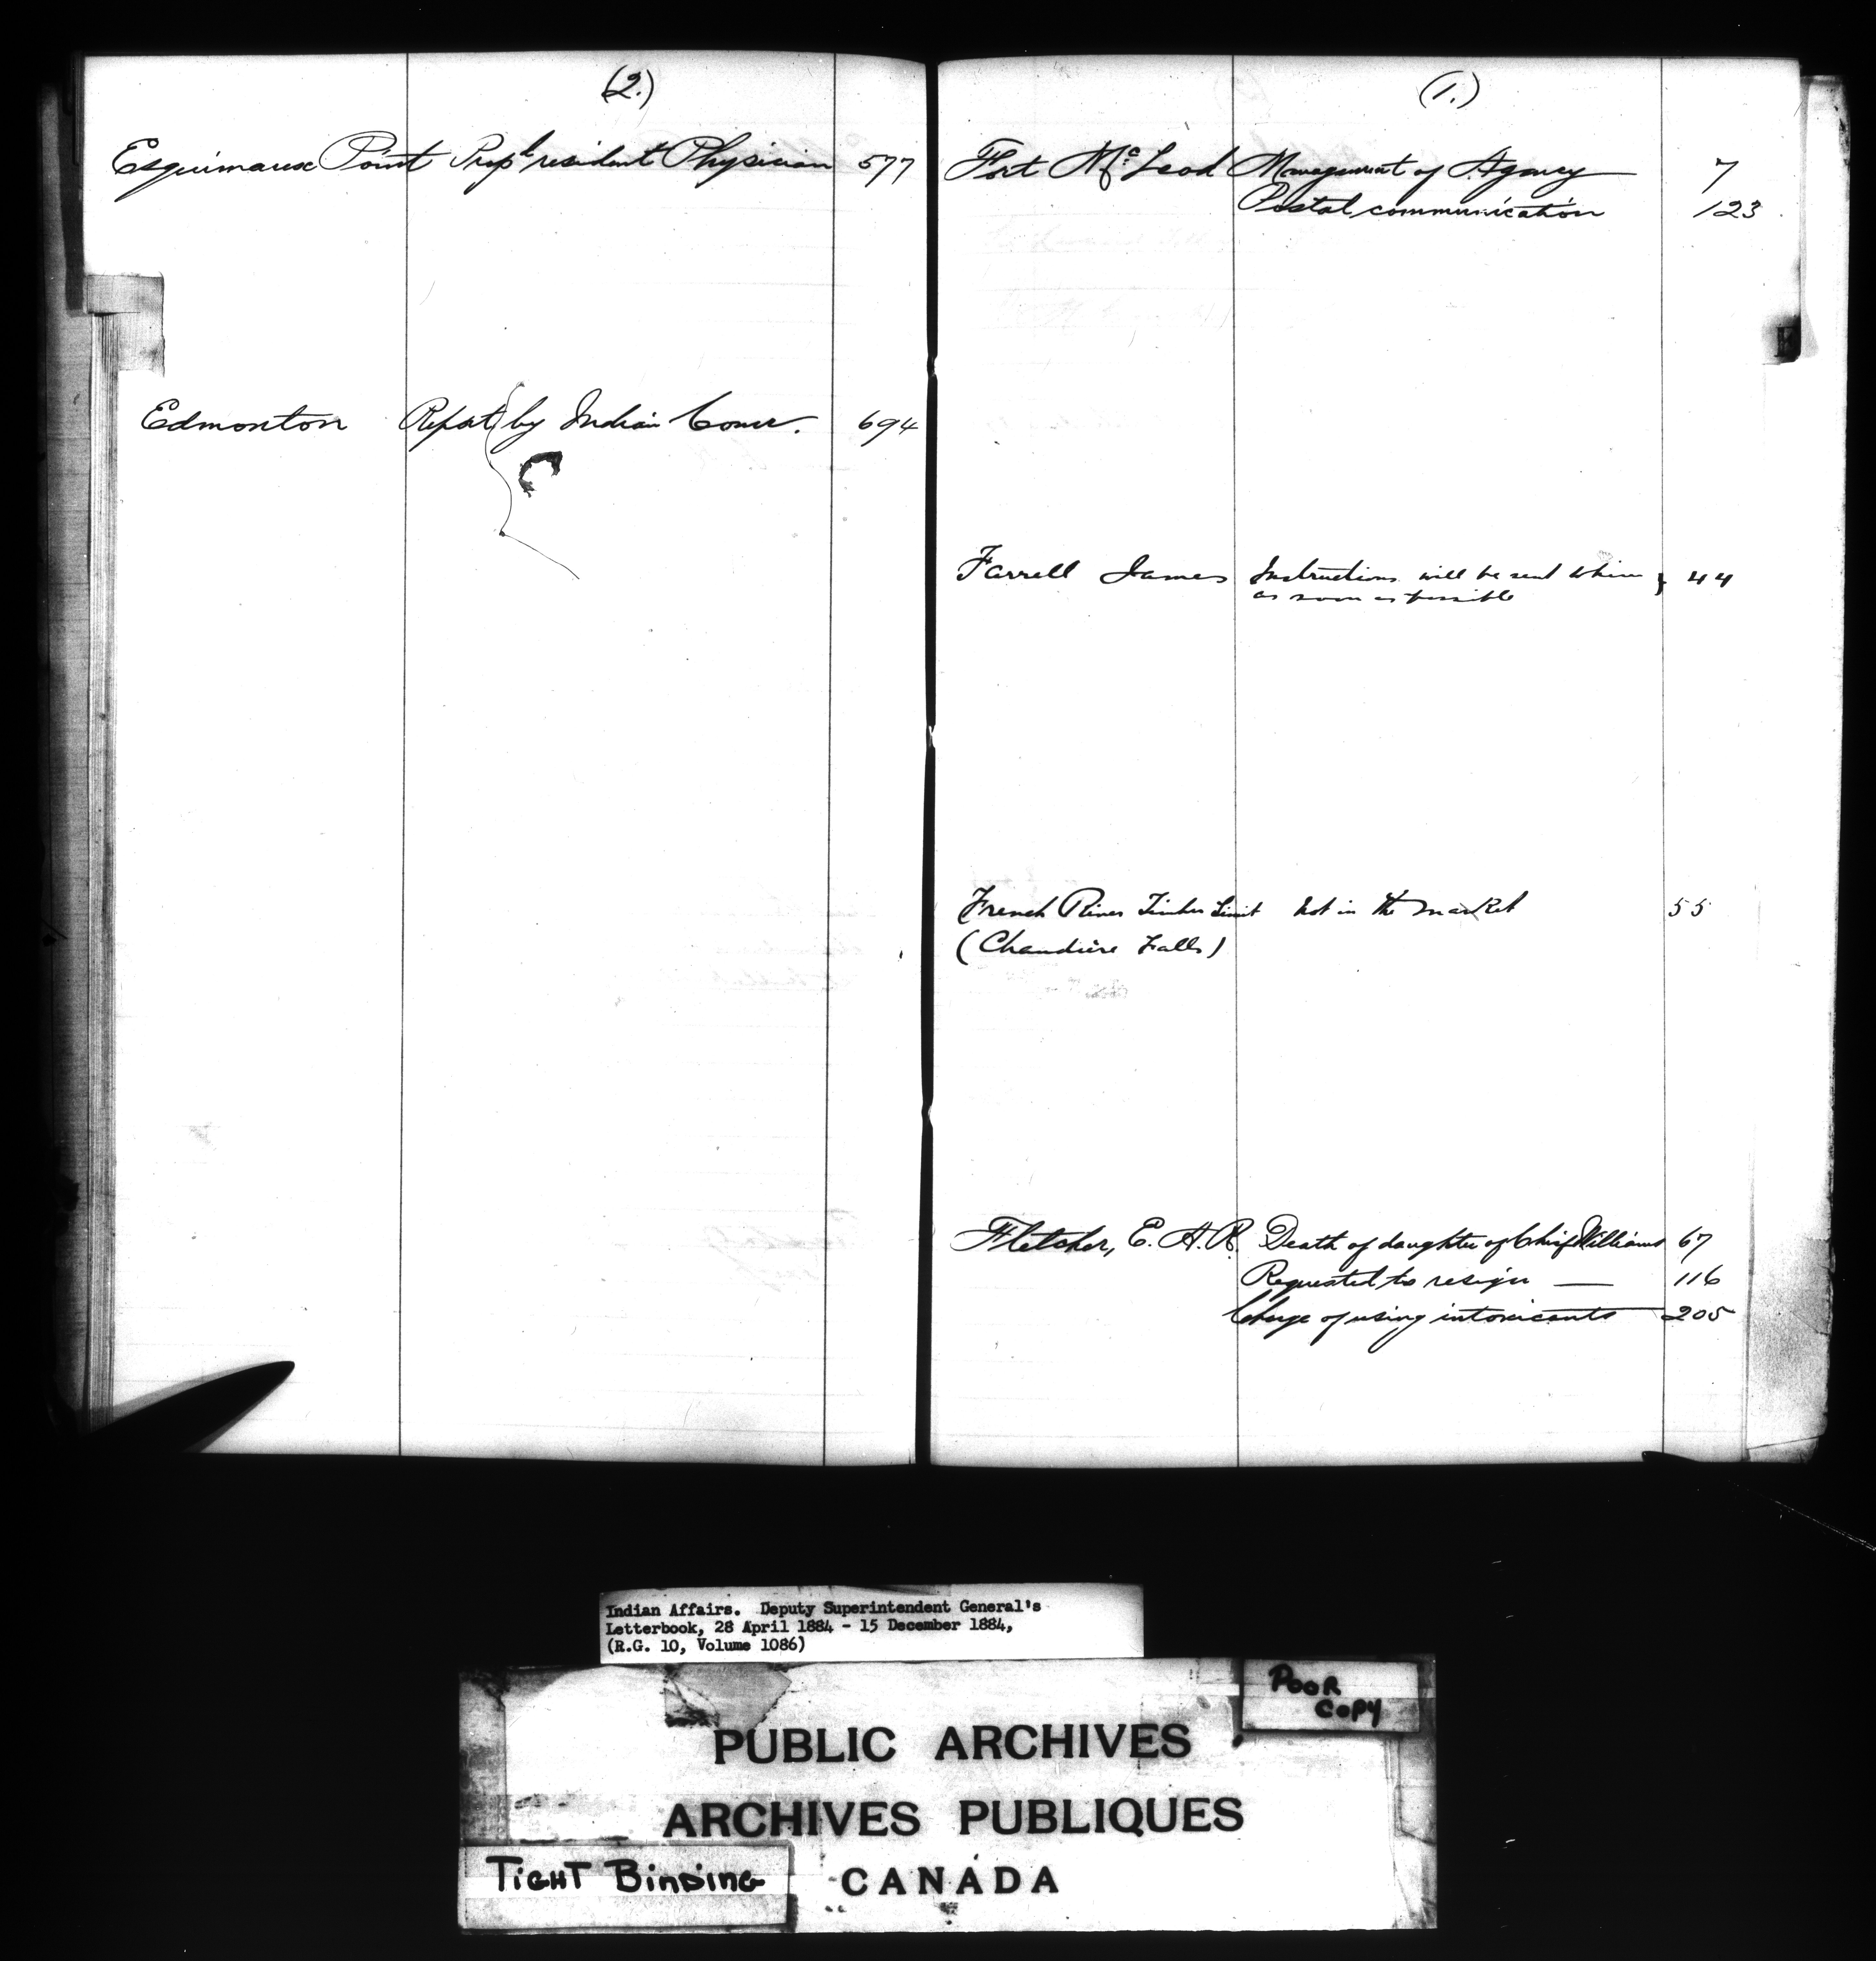 (2.)
Esquimaux Point Prop^d resident Physician 577
Edmonton Report by Indian Comr. 694
(1.)
Fort McLeod Management of Agency 7
Postal communication 123
Farrell James Instructions will be sent to him } 44
as soon as possible
French River Timber Limit not in the market 55
(Chaudière Falls)
Fletcher, E. A. R. Death of daughter of Chief Williams 67
Requested to resign — 116
Charge of using intoxicants — 205
F
Indian Affairs. Deputy Superintendent General's
Letterbook, 28 April 1884 - 15 December 1884,
(R.G. 10, Volume 1086)
POOR
COPY
PUBLIC ARCHIVES
ARCHIVES PUBLIQUES
TIGHT BINDING
CANADA